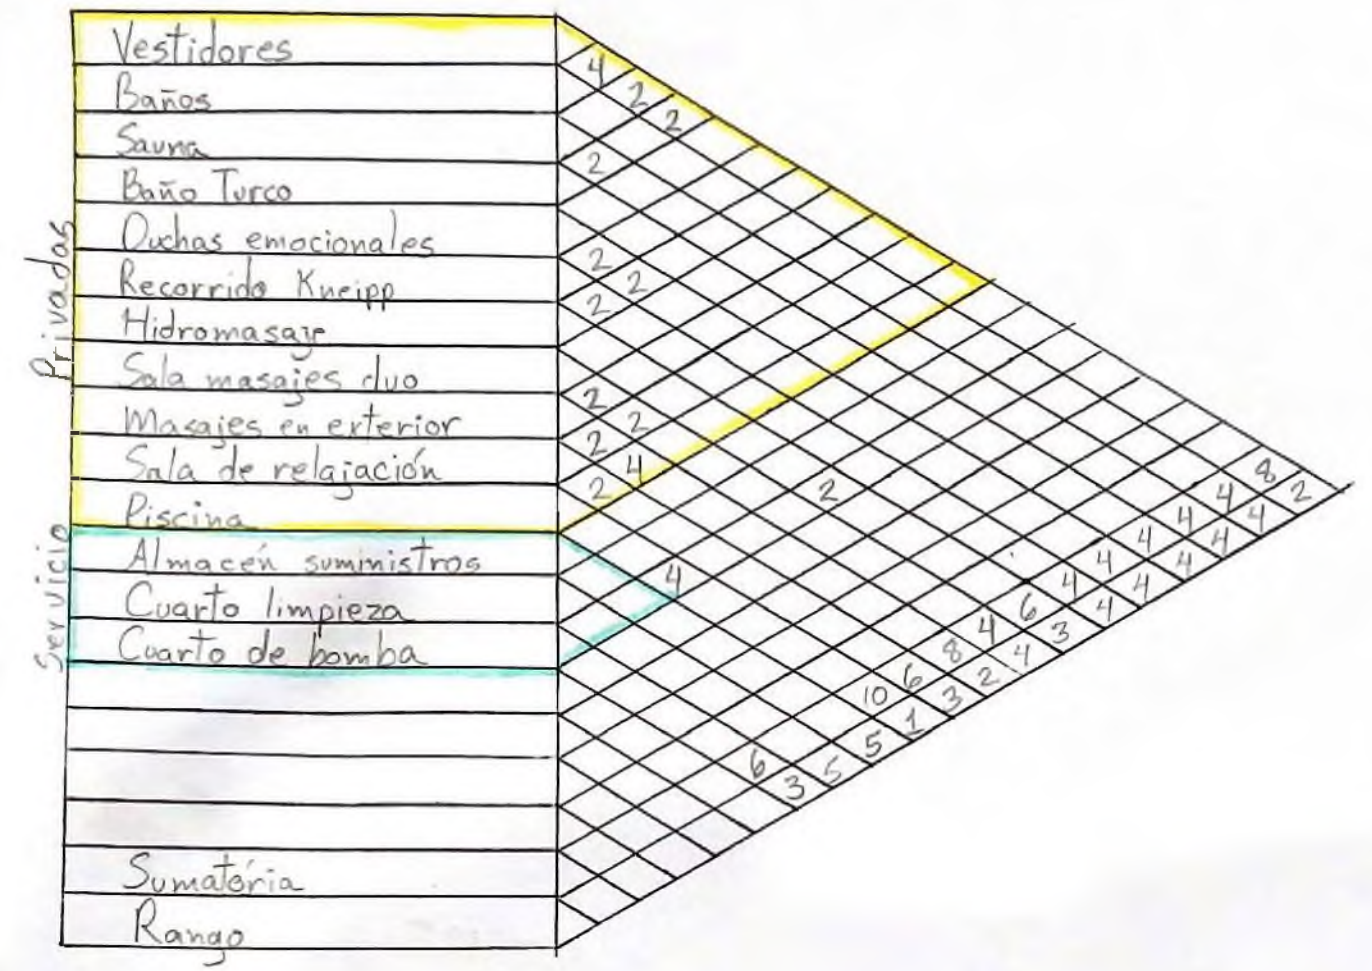 Privados
Servicio
Vestidores
Baños
Sauna
Baño Turco
Duchas emocionales
Recorrido Kneipp
Hidromasaje
Sala masajes duo
Masajes en exterior
Sala de relajación
Piscina
Almacén suministros
Cuarto limpieza
Cuarto de bomba
Sumatória
Rango
4
2
2
2
2
2
2
2
2
2
4
2
2
4
8 4 4 4 4 4 6 4 8 6 10 6
2 4 4 4 4 4 3 4 2 3 1 5 5 3